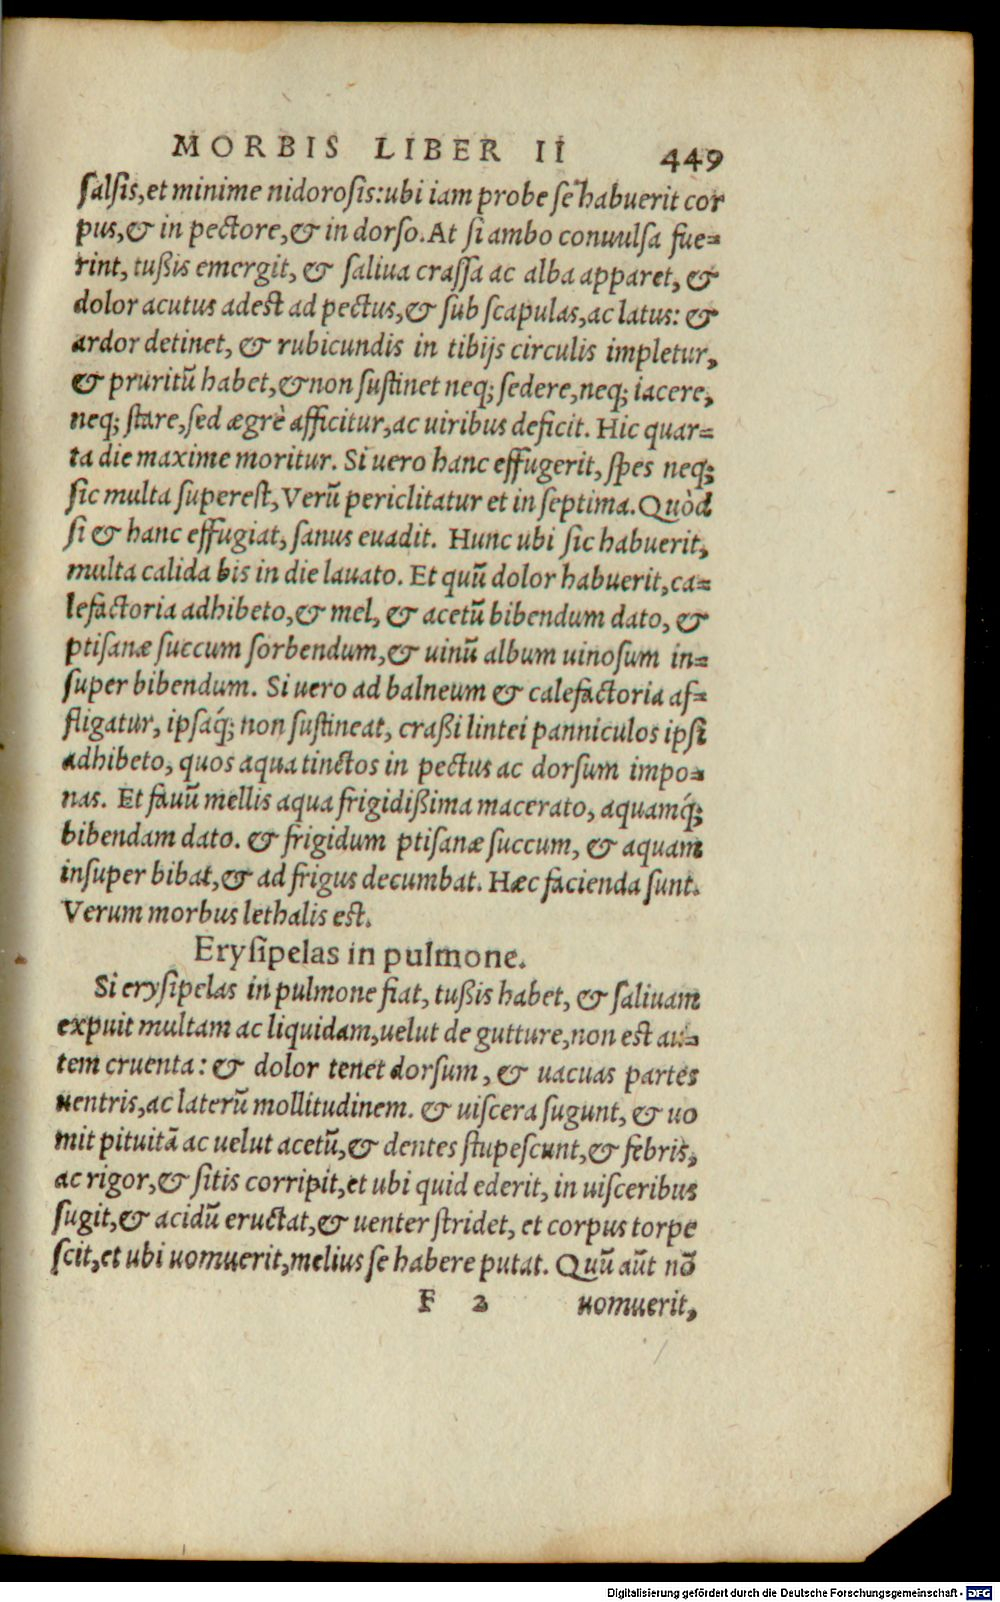 MORBIS LIBER II 449
ſalſis, et minime nidoroſis: ubi iam probe ſe habuerit cor
pus, & in pectore, & in dorſo. At ſi ambo conuulſa fue=
rint, tußis emergit, & ſaliua craſſa ac alba apparet, &
dolor acutus adest ad pectus, & ſub ſcapulas, ac latus: &
ardor detinet, & rubicundis in tibijs circulis impletur,
& pruritũ habet, & non ſuſtinet neq; ſedere, neq; iacere,
neq; ſtare, ſed ægrè afficitur, ac uiribus deficit. Hic quar=
ta die maxime moritur. Si uero hanc effugerit, ſpes neq;
ſic multa ſupereſt, Verũ periclitatur et in ſeptima. Quòd
ſi & hanc effugiat, ſanus euadit. Hunc ubi ſic habuerit,
multa calida bis in die lauato. Et quũ dolor habuerit, ca=
lefactoria adhibeto, & mel, & acetũ bibendum dato, &
ptiſanæ ſuccum ſorbendum, & uinũ album uinoſum in=
ſuper bibendum. Si uero ad balneum & calefactoria af=
fligatur, ipſaq́; non ſuſtineat, craßi lintei panniculos ipſi
adhibeto, quos aqua tinctos in pectus ac dorſum impo=
nas. Et fauũ mellis aqua frigidißima macerato, aquamq́;
bibendam dato. & frigidum ptiſanæ ſuccum, & aquam
inſuper bibat, & ad frigus decumbat. Hæc facienda ſunt.
Verum morbus lethalis eſt.
Eryſipelas in pulmone.
Si eryſipelas in pulmone fiat, tußis habet, & ſaliuam
expuit multam ac liquidam, uelut de gutture, non eſt au=
tem cruenta: & dolor tenet dorſum, & uacuas partes
uentris, ac laterũ mollitudinem. & uiſcera ſugunt, & uo
mit pituitã ac uelut acetũ, & dentes ſtupeſcunt, & febris,
ac rigor, & ſitis corripit, et ubi quid ederit, in uiſceribus
ſugit, & acidũ eructat, & uenter ſtridet, et corpus torpe
ſcit, et ubi uomuerit, melius ſe habere putat. Quũ aũt nõ
F 2 uomuerit,
Digitalisierung gefördert durch die Deutsche Forschungsgemeinschaft - DFG